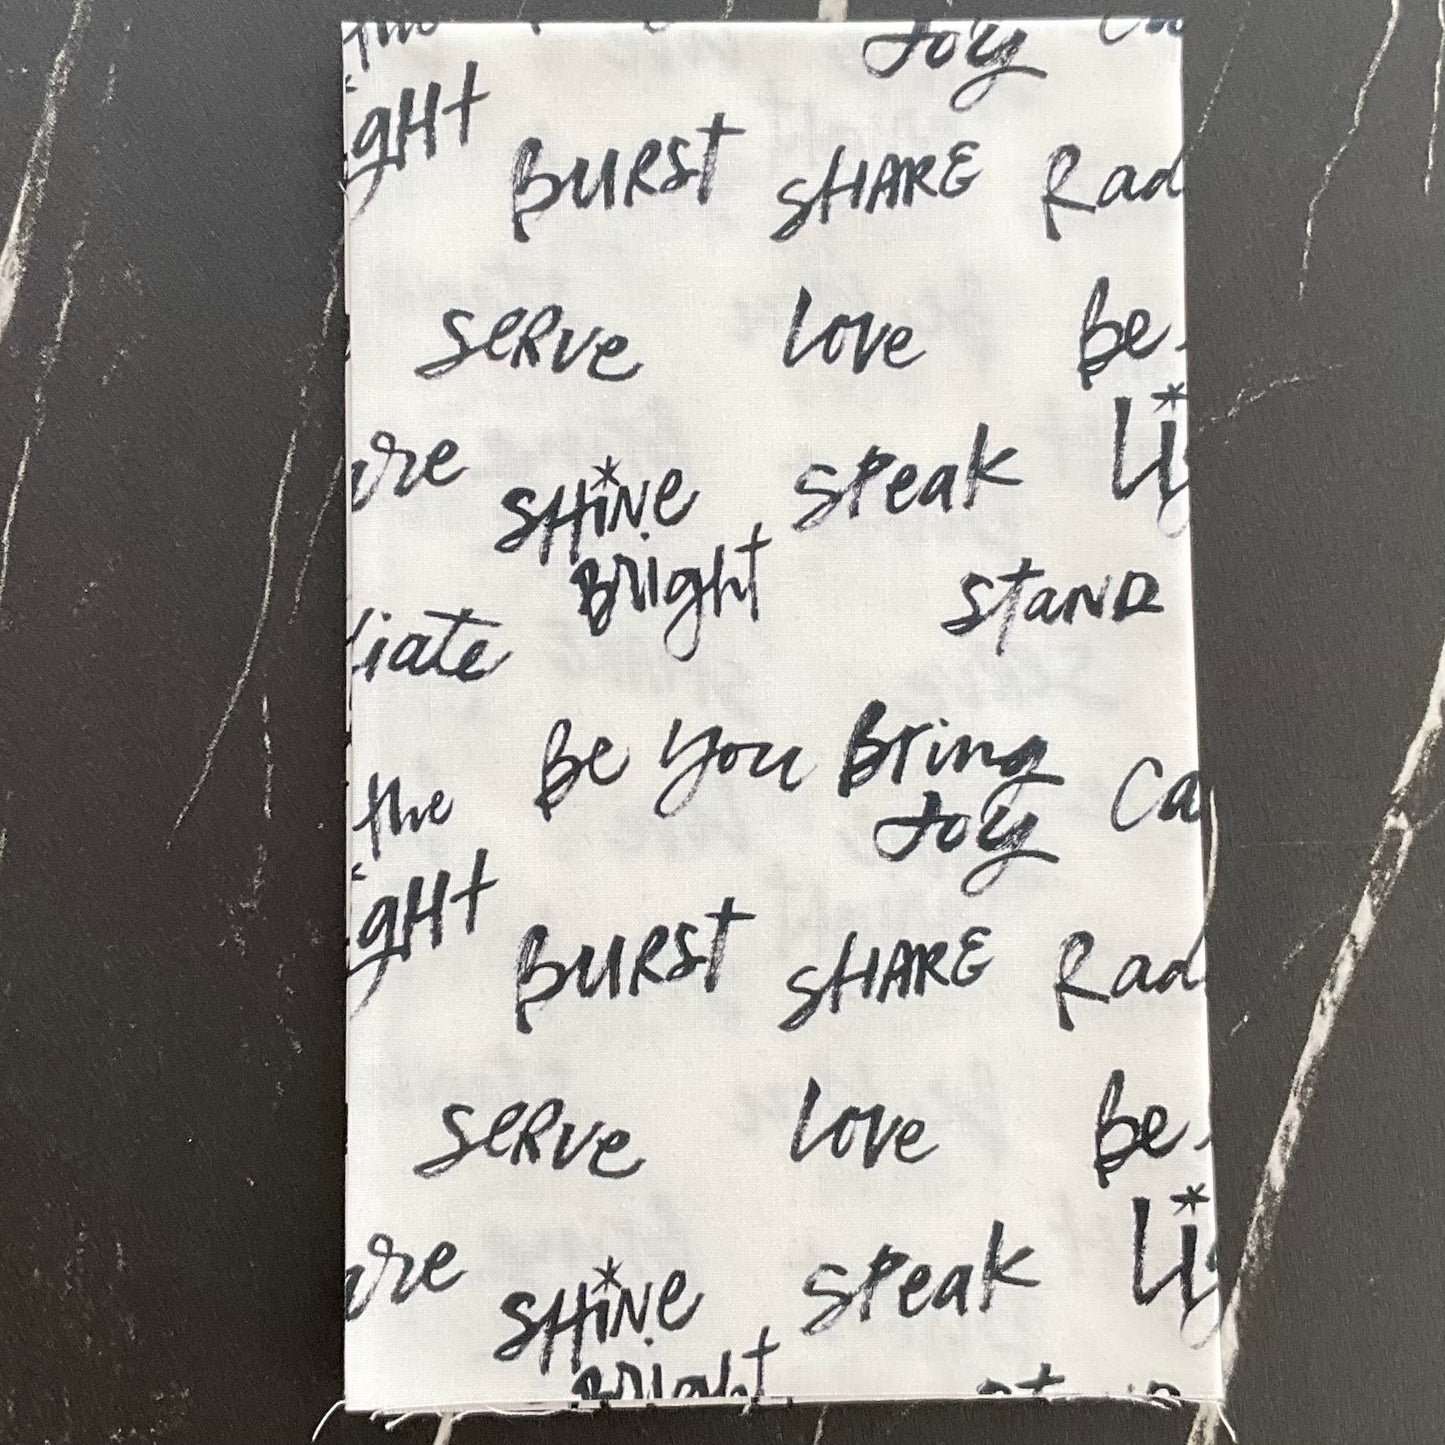 the Joy Ca
ight BURST SHARE Rad
serve love Be
Li
are SHiNe speak
Bright stand
iate
Be you Bring
the Joy Ca
ight
BURST SHARE Rad
serve love Be
Li
are SHiNe speak
Bright